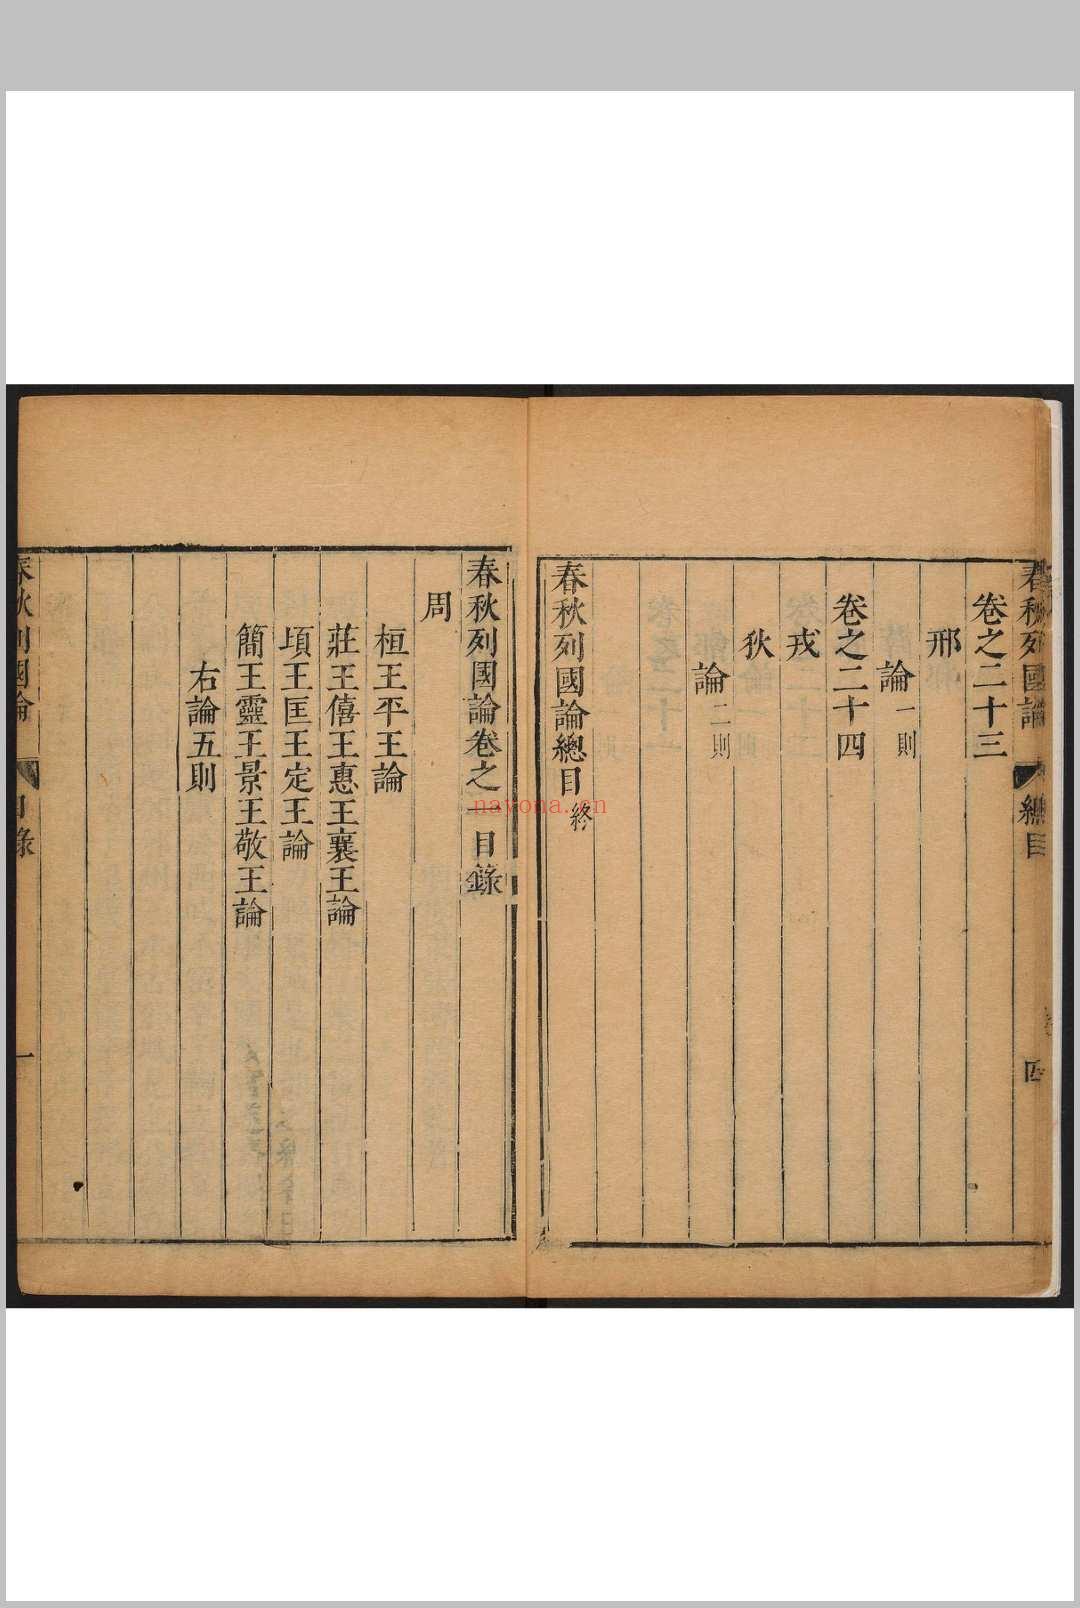 春秋列國論 總目 四
卷之二十三
邢
論一則
卷之二十四
戎
狄
論二則
春秋列國論總目終
春秋列國論卷之一目錄
周
桓王平王論
莊王僖王惠王襄王論
頃王匡王定王論
簡王靈王景王敬王論
右論五則
春秋列國論 目錄 一
nayona.cn